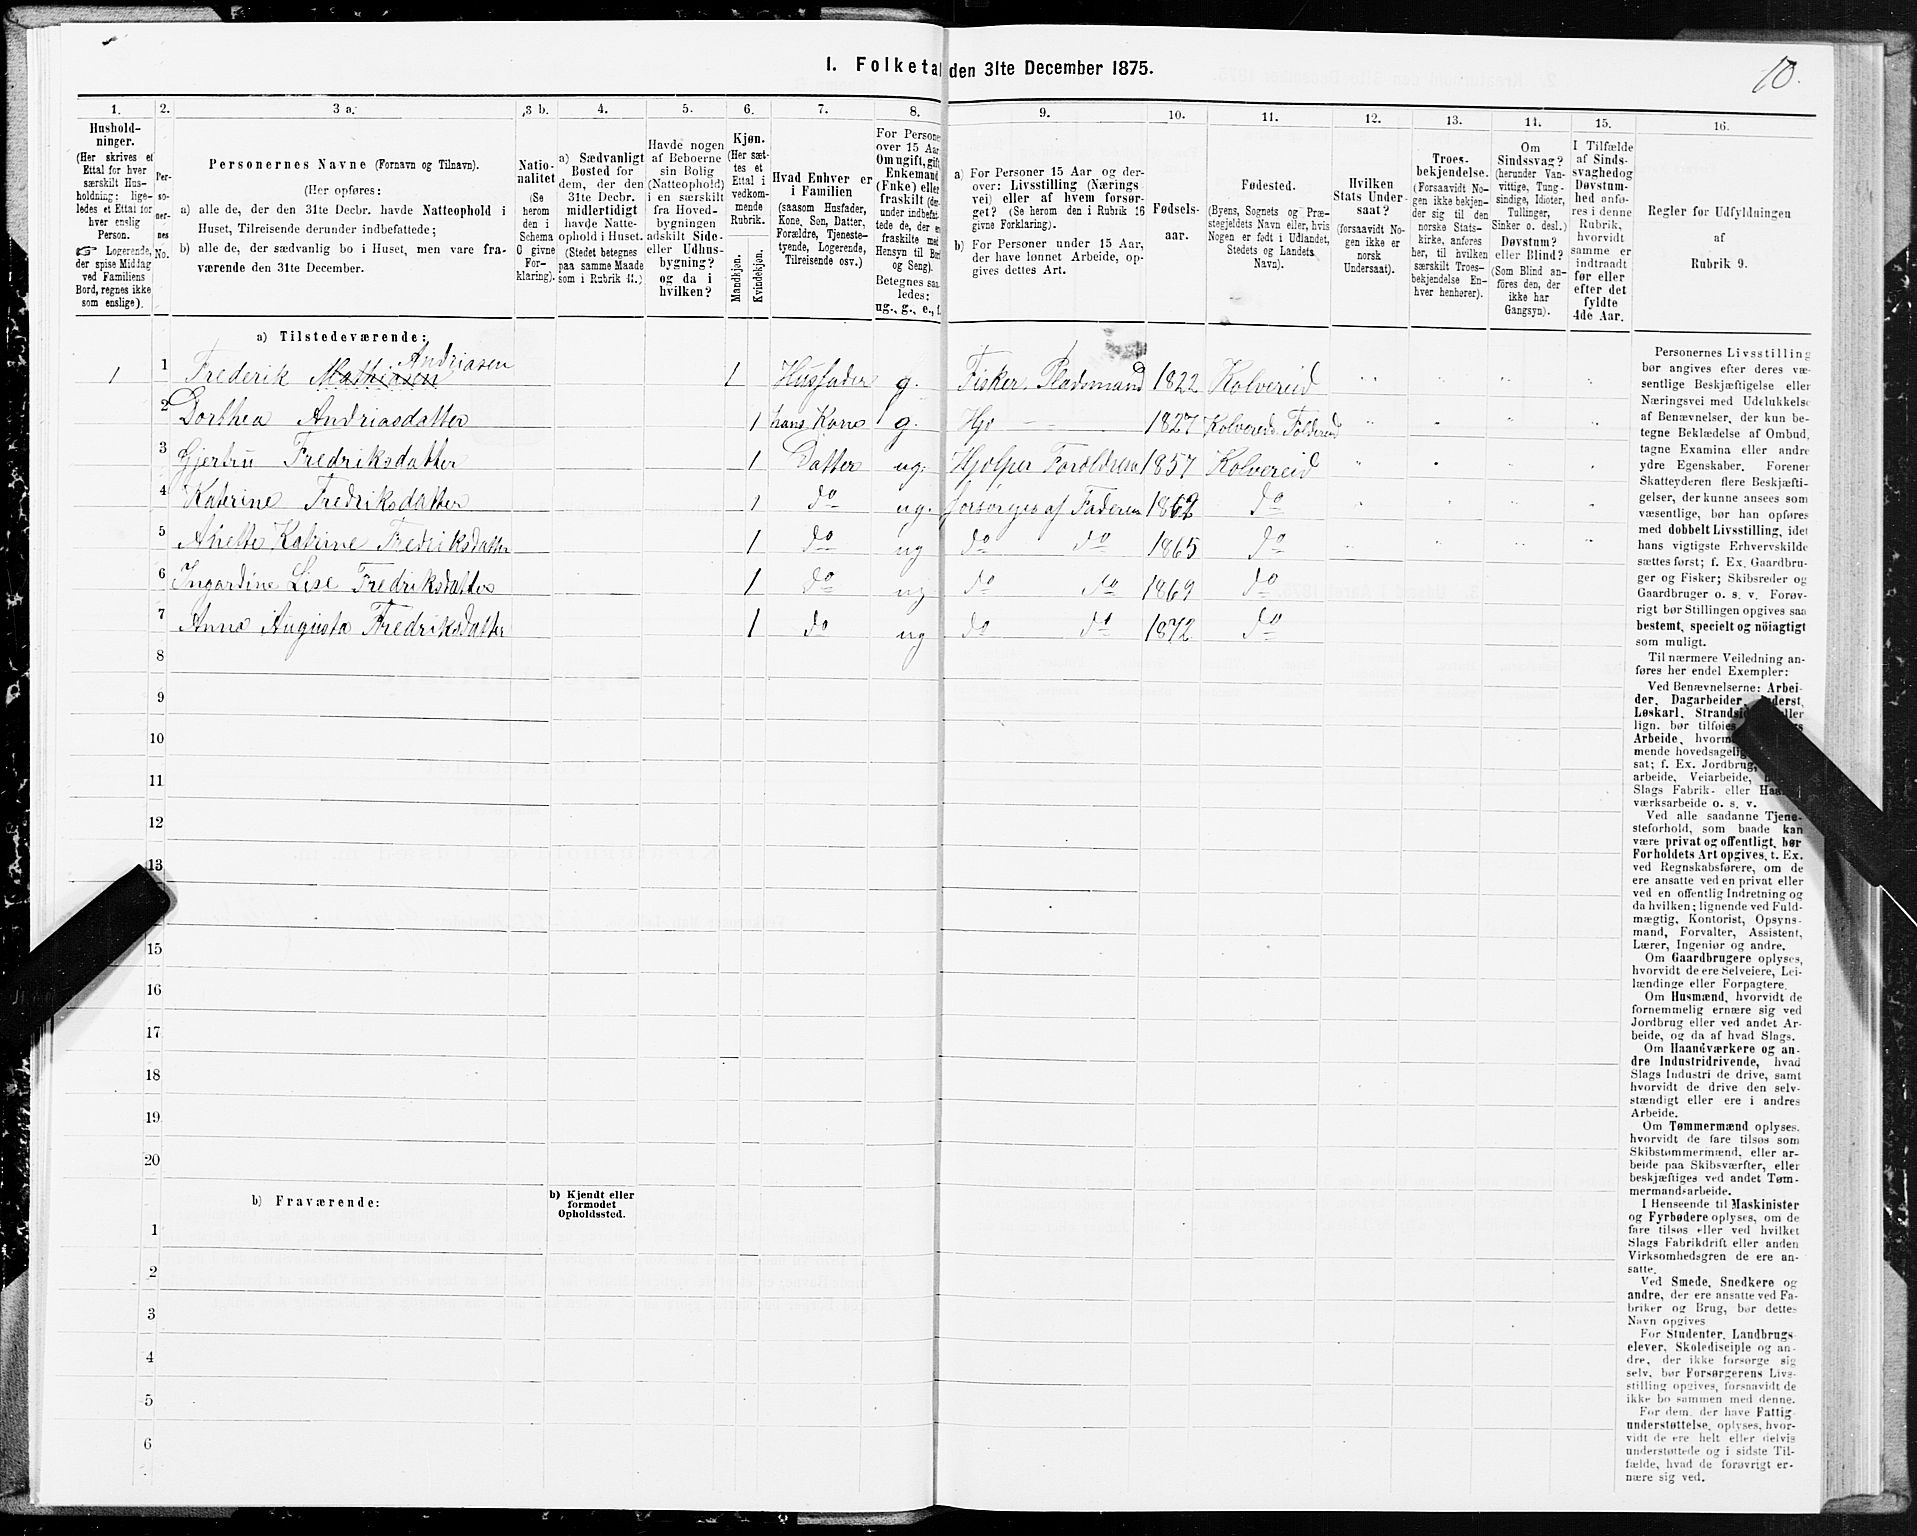 I. Folketal den 31te December 1875.
10.
1. 2. 3 a. 3 b. 4. 5. 6. 7. 8. 9. 10. 11. 12. 13. 14. 15. 16.
Hushold-
ninger.
(Her skrives et
Ettal for hver
særskilt Hus-
holdning; lige-
ledes et Ettal for
hver enslig
Person.
☞ Logerende,
der spise Middag
ved Familiens
Bord, regnes ikke
som enslige).
Per-
so-
ner-
nes
No.
Personernes Navne (Fornavn og Tilnavn).
(Her opføres:
a) alle de, der den 31te Decbr. havde Natteophold i
Huset, Tilreisende derunder indbefattede;
b) alle de, der sædvanlig bo i Huset, men vare fra-
værende den 31te December.
Natio-
nalitet
(Se
herom
den i
Schema
O givne
For-
klaring).
a) Sædvanligt
Bosted for
dem, der den
31te Decbr.
midlertidigt
havde Natte-
ophold i Huset.
(Stedet betegnes
paa samme Maade
som i Rubrik 11.)
Havde nogen
af Beboerne
sin Bolig
(Natteophold)
i en særskilt
fra Hoved-
bygningen
adskilt Side-
eller Udhus-
bygning?
og da i
hvilken?
Kjøn.
(Her sæt-
tes et
Ettal i
vedkom-
mende
Rubrik.
Mandkjøn.
Kvindekjøn.
Hvad Enhver er
i Familien
(saasom Husfader,
Kone, Søn, Datter,
Forældre, Tjeneste-
tyende, Logerende,
Tilreisende osv.)
For Persone
over 15 Aar
Om ugift, gift,
Enkemand
(Enke) eller
fraskilt (de
under indbefat
tede de, der e
fraskilte med
Hensyn til Bo
og Seng).
Betegnes saa
ledes:
ug., g., e., f.
a) For Personer 15 Aar og der-
over: Livsstilling (Nærings-
vei) eller af hvem forsør-
get? (Se herom den i Rubrik 16
givne Forklaring).
b) For Personer under 15 Aar,
der have lønnet Arbeide, op-
gives dettes Art.
Fødsels-
aar.
Fødested.
(Byens, Sognets og Præ-
stegjeldets Navn eller, hvis
Nogen er født i Udlandet,
Stedets og Landets
Navn).
Hvilken
Stats Under-
saat?
(forsaavidt No-
gen ikke er
norsk
Undersaat).
Troes-
bekjendelse.
(Forsaavidt No-
gen ikke bekjen-
der sig til den
norske Stats-
kirke, anføres
her, til hvilken
særskilt Troes-
bekjendelse En-
hver henhører).
Om
Sindssvag?
(herunder Van-
vittige, Tung-
sindige, Idioter,
Tullinger,
Sinker o. desl.)
Døvstum?
eller Blind?
(Som Blind an-
føres den, der
ikke har
Gangsyn).
I Tilfælde
af Sinds-
svaghed og
Døvstum-
hed anfø-
res i denne
Rubrik,
hvorvidt
samme er
indtraadt
før eller
efter det
fyldte
4de Aar.
Regler for Udfyldningen
af
Rubrik 9.
a) Tilstedeværende:
Andriasen
1 1 Frederik Mathiasen 1 Husfader g. Fisker Pladsmand 1822 Kolvereid
2 Dorthea Andriasdatter 1 hans Kone g. Hjv 1827 Kolvereid Foldereid
3 Gjertru Fredriksdatter 1 Datter ug. Hjelper Forældrene 1857 Kolvereid
4 Katrine Fredriksdatter 1 do ug. forsørges af Faderen 1862 do
5 Anette Katrine Fredriksdatter 1 do ug do do 1865 do
6 Ingardine Lise Fredriksdatter 1 do ug do do 1869 do
7 Anna Augusta Fredriksdatter 1 do ug do do 1872 do
8
9
10
11
12
13
15
16
17
18
19
20
b) Fraværende:
b) Kjendt eller
formodet
Opholdssted.
1
2
3
4
5
6
Personernes Livsstilling
bør angives efter deres væ-
sentlige Beskjæftigelse eller
Næringsvei med Udelukkelse
af Benævnelser, der kun be-
tegne Beklædelse af Ombud,
tagne Examina eller andre
ydre Egenskaber. Forener
Skatteyderen flere Beskjæfti-
gelser, der kunne ansees som
væsentlige, bør han opføres
med dobbelt Livsstilling, idet
hans vigtigste Erhvervskilde
sættes først; f. Ex. Gaardbru-
ger og Fisker; Skibsreder og
Gaardbruger o. s. v. Forøv-
rigt bør Stillingen opgives saa
bestemt, specielt og nöiagtigt
som muligt.
Til nærmere Veiledning an-
føres her endel Exempler:
Ved Benævnelserne: Arbei-
der, Dagarbeider, Inderst,
Løskarl, Strandsid eller
lign. bør tilføies
Arbeide, hvorm
mende hovedsagelig
sat; f. Ex. Jordbrug,
arbeide, Veiarbeide,
Slags Fabrik- eller Haa
værksarbeide o. s. v.
Ved alle saadanne Tjene-
steforhold, som baade kan
være privat og offentligt, bør
Forholdets Art opgives, t. Ex.
ved Regnskabsførere, om de
ere ansatte ved en privat eller
ved en offentlig Indretning og
da hvilken; lignende ved Fuld-
mægtig, Kontorist, Opsyns-
mand, Forvalter, Assistent,
Lærer, Ingeniør og andre.
Om Gaardbrugere oplyses,
hvorvidt de ere Selveiere, Lei-
lændinge eller Forpagtere.
Om Husmænd, hvorvidt de
fornemmelig ernære sig ved
Jordbrug eller ved andet Ar-
beide, og da af hvad Slags.
Om Haandværkere og an-
dre Industridrivende, hvad
Slags Industri de drive, samt
hvorvidt de drive den selv-
stændigt eller ere i andres
Arbeide.
Om Tømmermænd oplyses,
hvorvidt de fare tilsøs som
Skibstømmermænd, eller ar-
beide paa Skibsværfter, eller
beskjæftiges ved andet Tøm-
mermandsarbeide.
I Henseende til Maskinister
og Fyrbødere oplyses, om de
fare tilsøs eller ved hvilket
Slags Fabrikdrift eller anden
Virksomhedsgren de ere an-
satte.
Ved Smede, Snedkere og
andre, der ere ansatte ved Fa-
briker og Brug, bør dettes
Navn opgives
For Studenter, Landbrugs-
elever, Skoledisciple og an-
dre, der ikke forsørge sig
selv, bør Forsørgerens Livs-
stilling opgives, forsaavidt de
ikke bo sammen med denne.
For dem, der have Fattig-
understøttelse, oplyses, hvor-
vidt de ere helt eller delvis
understøttede og i sidste Til-
fælde, hvad de forøvrigt er-
nære sig ved.